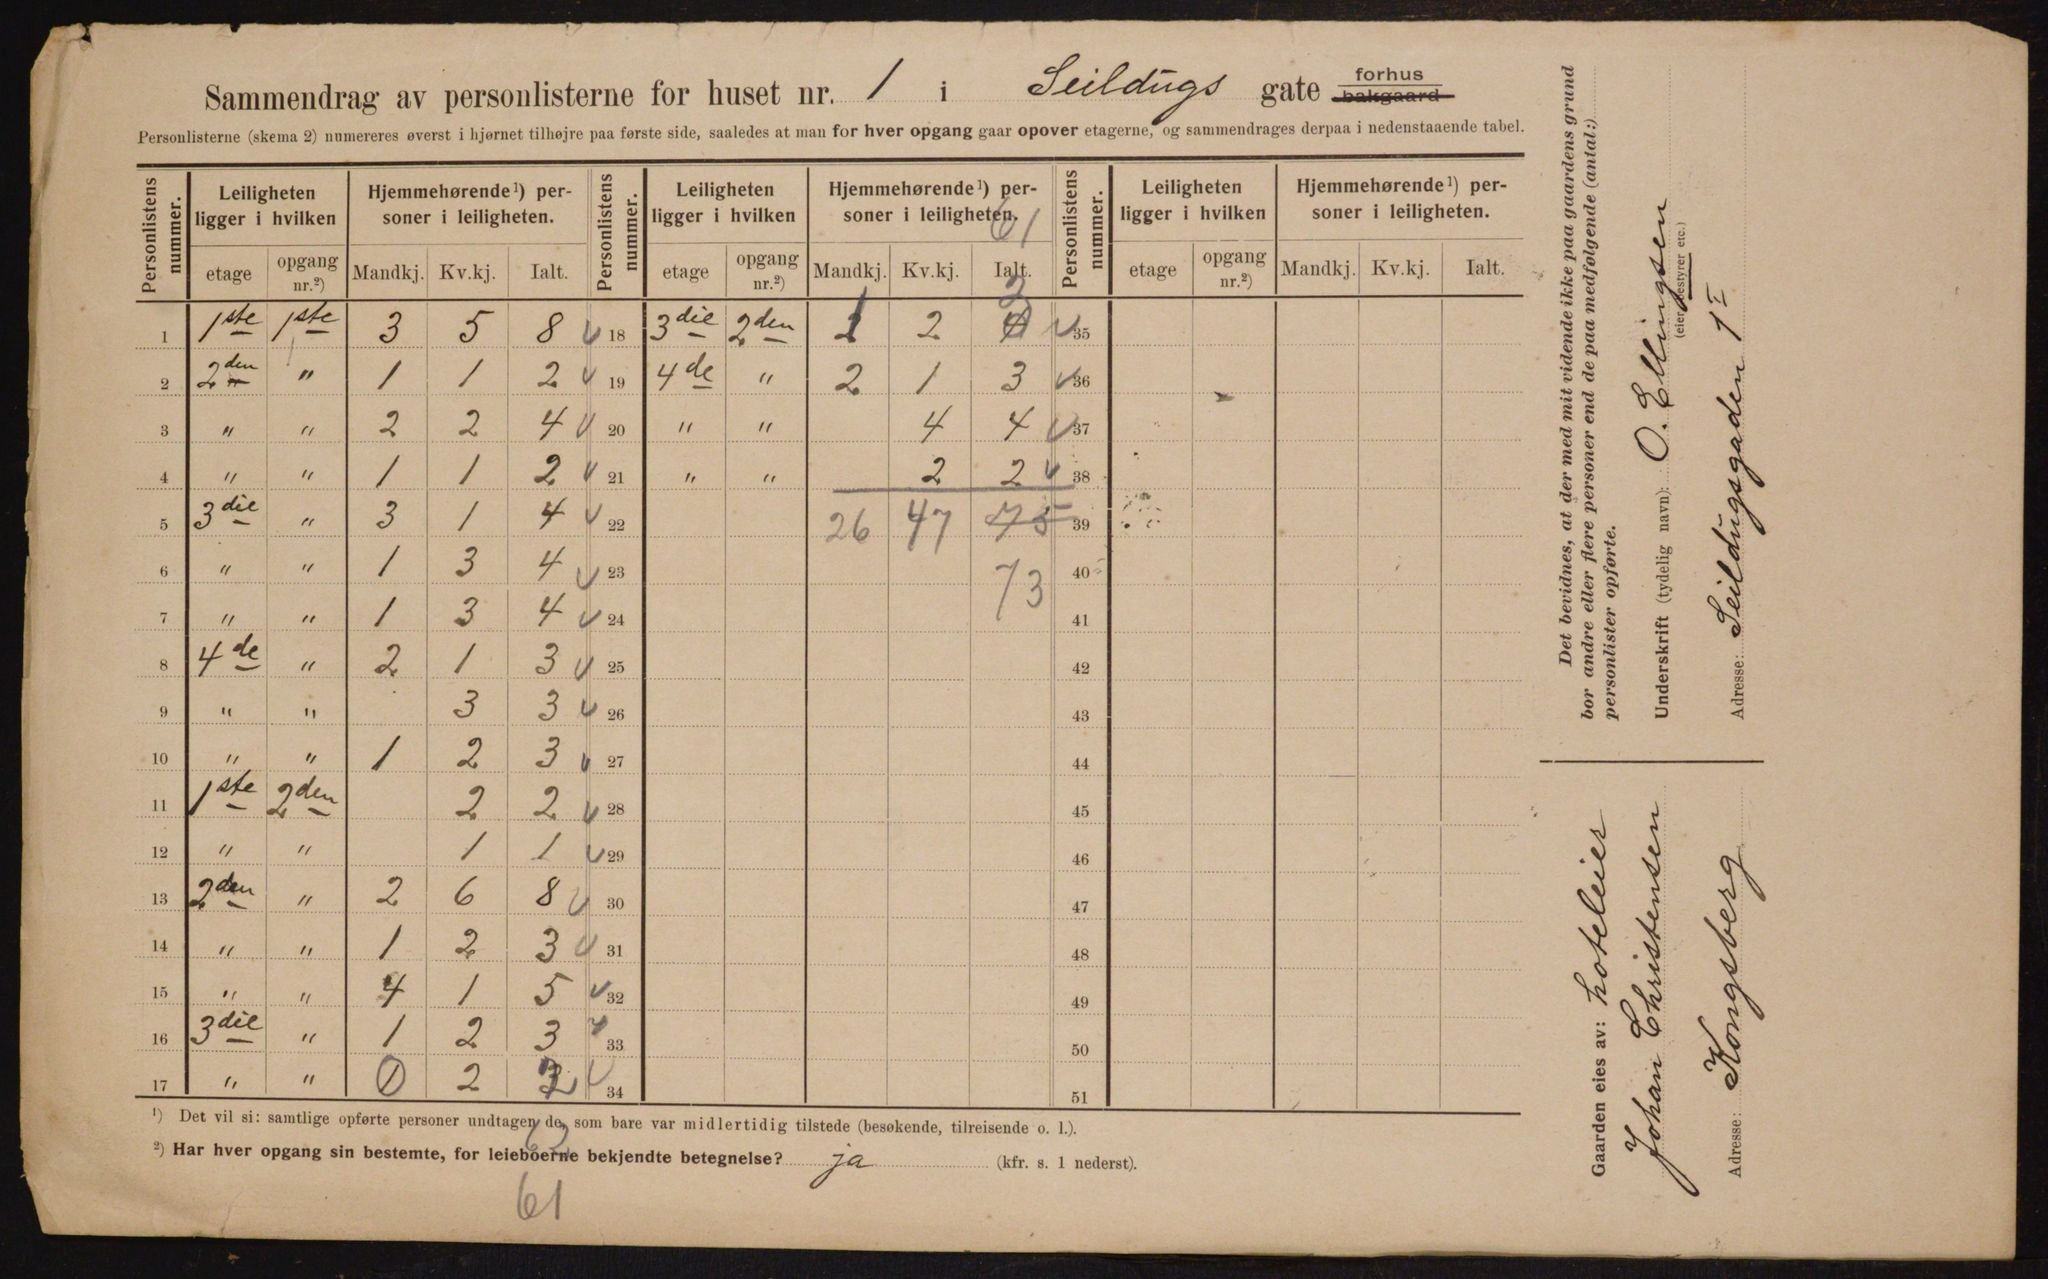 Sammendrag av personlisterne for huset nr. 1 i Seildugs gate forhus bakgaard
Personlisterne (skema 2) numereres øverst i hjørnet tilhøjre paa første side, saaledes at man for hver opgang gaar opover etagerne, og sammendrages derpaa i nedenstaaende tabel.
Personlistens nummer. Leiligheten ligger i hvilken Hjemmehørende¹) personer i leiligheten. Personlistens nummer. Leiligheten ligger i hvilken Hjemmehørende¹) personer i leiligheten. Personlistens nummer. Leiligheten ligger i hvilken Hjemmehørende¹) personer i leiligheten.
61
etage opgang nr.²) Mandkj. Kv.kj. Ialt. etage opgang nr.²) Mandkj. Kv.kj. Ialt. etage opgang nr.²) Mandkj. Kv.kj. Ialt.
1 1ste 1ste 3 5 8 18 3die 2den 1 2 3 35
2 2den " 1 1 2 19 4de " 2 1 3 36
3 " " 2 2 4 20 " " 4 4 37
4 " " 1 1 2 21 " " 2 2 38
5 3die " 3 1 4 22 26 47 75 39
6 " " 1 3 4 23 73 40
7 " " 1 3 4 24 41
8 4de " 2 1 3 25 42
9 " " 3 3 26 43
10 " " 1 2 3 27 44
11 1ste 2den 2 2 28 45
12 " " 1 1 29 46
13 2den " 2 6 8 30 47
14 " " 1 2 3 31 48
15 " " 4 1 5 32 49
16 3die " 1 2 3 33 50
17 " " 0 2 2 34 51
¹) Det vil si: samtlige opførte personer undtagen de, som bare var midlertidig tilstede (besøkende, tilreisende o. l.).
²) Har hver opgang sin bestemte, for leieboerne bekjendte betegnelse? ja (kfr. s. 1 nederst).
61
Det bevidnes, at der med mit vidende ikke paa gaardens grund
bor andre eller flere personer end de paa medfølgende (antal:)
personlister opførte.
Underskrift (tydelig navn): O. Ellingsen
(eier, bestyrer etc.)
Adresse: Seildugsgaden 1 I
Gaarden eies av: hoteleier
Johan Christensen
Adresse: Kongsberg